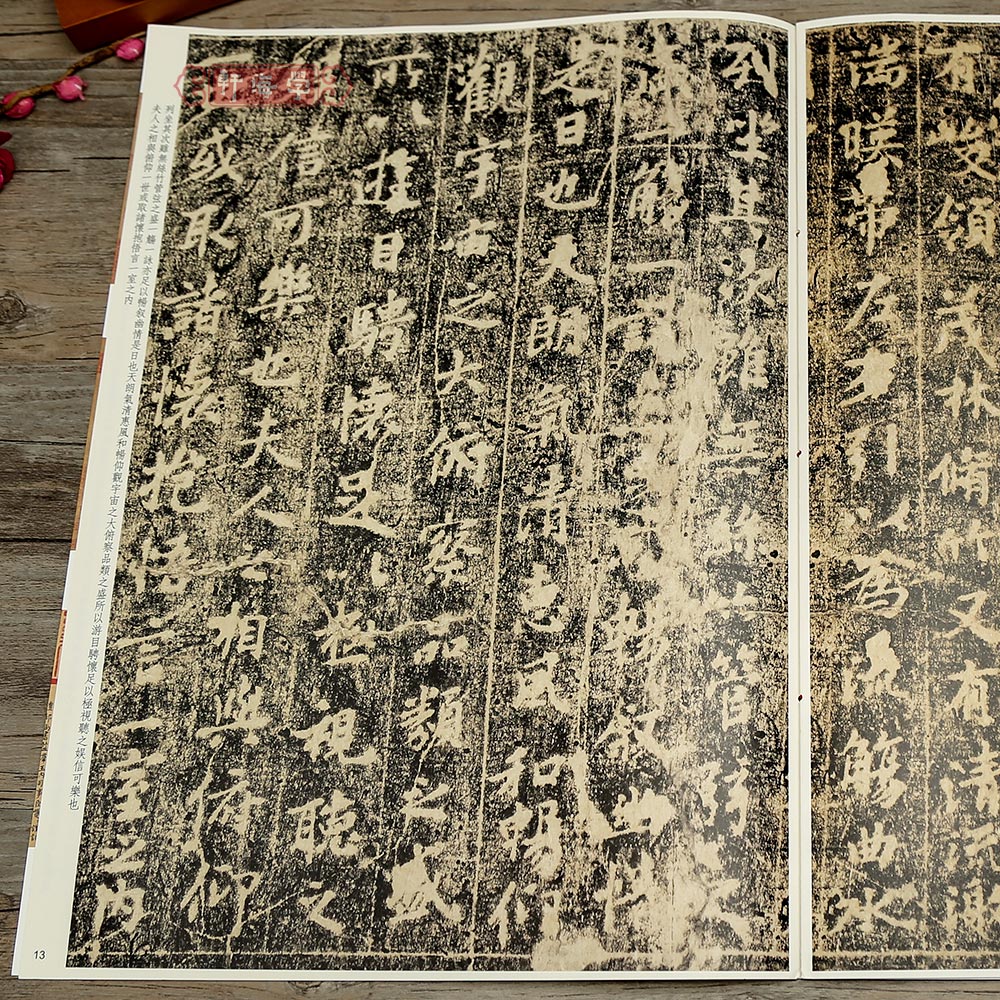 有峻領茂林脩竹又有清流激
湍暎帶左右引以為流觴曲水
列坐其次雖無絲竹管弦之
盛一觴一詠亦足以暢敘幽情
是日也天朗氣清惠風和暢仰
觀宇宙之大俯察品類之盛
所以遊目騁懷足以極視聽之
娛信可樂也夫人之相與俯仰
一世或取諸懷抱悟言一室之內
列坐其次雖無絲竹管弦之盛一觴一詠亦足以暢叙幽情是日也天朗氣清惠風和暢仰觀宇宙之大俯察品類之盛所以游目騁懷足以極視聽之娛信可樂也
夫人之相與俯仰一世或取諸懷抱悟言一室之內
13